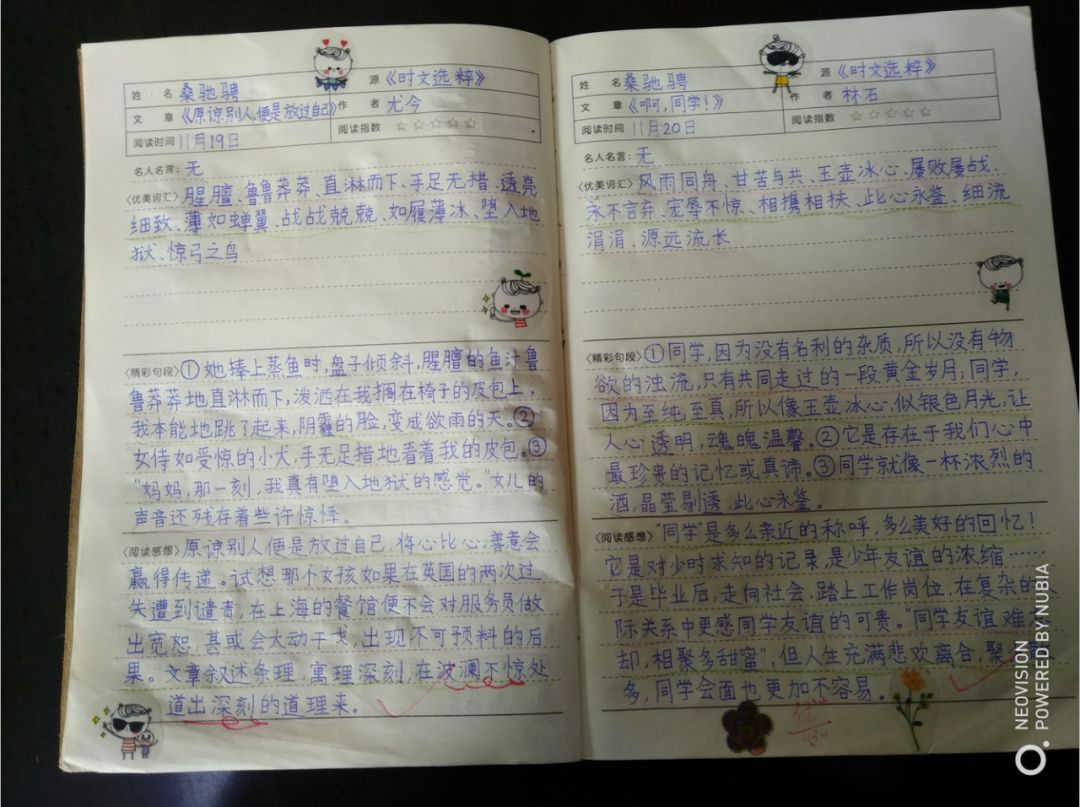 姓 名 桑驰骋 源 《时文选粹》
文 章 《原谅别人,便是放过自己》 作 者 尤今
阅读时间 11月19日 阅读指数 ☆☆☆☆☆
名人名言: 无
〈优美词汇〉 腥膻、鲁鲁莽莽、直淋而下、手足无措、透亮
细致、薄如蝉翼、战战兢兢、如履薄冰、堕入地
狱、惊弓之鸟
〈精彩句段〉 ①她捧上蒸鱼时,盘子倾斜,腥膻的鱼汁鲁
鲁莽莽地直淋而下,泼洒在我搁在椅子的皮包上,
我本能地跳了起来,阴霾的脸,变成欲雨的天。②
女侍如受惊的小犬,手无足措地看着我的皮包。③
“妈妈,那一刻,我真有堕入地狱的感觉。”女儿的
声音还残存着些许惊悸。
〈阅读感想〉 原谅别人便是放过自己,将心比心,善意会
赢得传递。试想那个女孩如果在英国的两次过
失遭到谴责,在上海的餐馆便不会对服务员做
出宽恕,甚或会大动干戈,出现不可预料的后
果。文章叙述条理,寓理深刻,在波澜不惊处
道出深刻的道理来。
姓 名 桑驰骋 源 《时文选粹》
文 章 《啊,同学!》 作 者 林石
阅读时间 11月20日 阅读指数 ☆☆☆☆☆
名人名言: 无
〈优美词汇〉 风雨同舟、甘苦与共、玉壶冰心、屡败屡战、
永不言弃、宠辱不惊、相携相扶、此心永鉴、细流
涓涓、源远流长
〈精彩句段〉 ①同学,因为没有名利的杂质,所以没有物
欲的浊流,只有共同走过的一段黄金岁月;同学,
因为至纯,至真,所以像玉壶冰心,似银色月光,让
人心透明,魂魄温馨。②它是存在于我们心中
最珍贵的记忆或真谛。③同学就像一杯浓烈的
酒,晶莹剔透,此心永鉴。
〈阅读感想〉 “同学”是多么亲近的称呼,多么美好的回忆!
它是对少时求知的记录,是少年友谊的浓缩……
于是毕业后,走向社会,踏上工作岗位,在复杂的人
际关系中更感同学友谊的可贵。“同学友谊难
却,相聚多甜蜜”,但人生充满悲欢离合,聚
多,同学会面也更加不容易。
优
NEOVISION
POWERED BY NUBIA